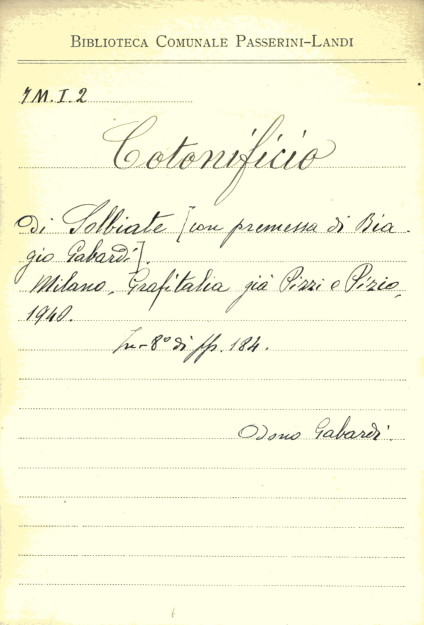 BIBLIOTECA COMUNALE PASSERINI-LANDI
7M.I.2
Cotonificio
Di Solbiate [con premessa di Bia-
gio Gabardi].
Milano, Grafitalia già Pizzi e Pizio,
1940.
In-8° di pp. 184.
Dono Gabardi.
6